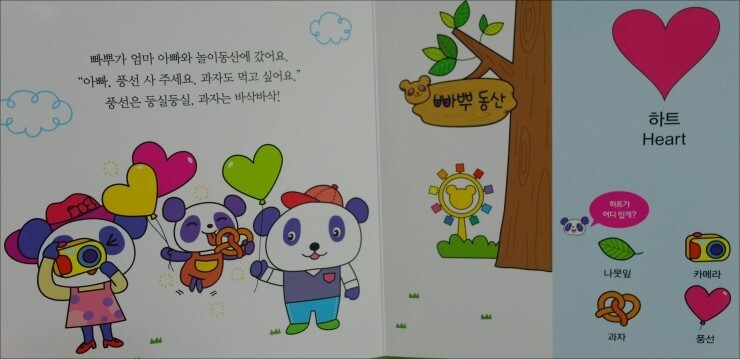 빠뿌가 엄마 아빠와 놀이동산에 갔어요.
“아빠, 풍선 사 주세요. 과자도 먹고 싶어요.”
풍선은 둥실둥실, 과자는 바삭바삭!
빠뿌 동산
하트
Heart
하트가
어디 있게?
나뭇잎
카메라
과자
풍선